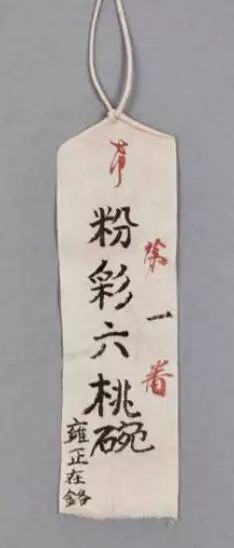 第一番
粉彩六桃碗
雍正在銘